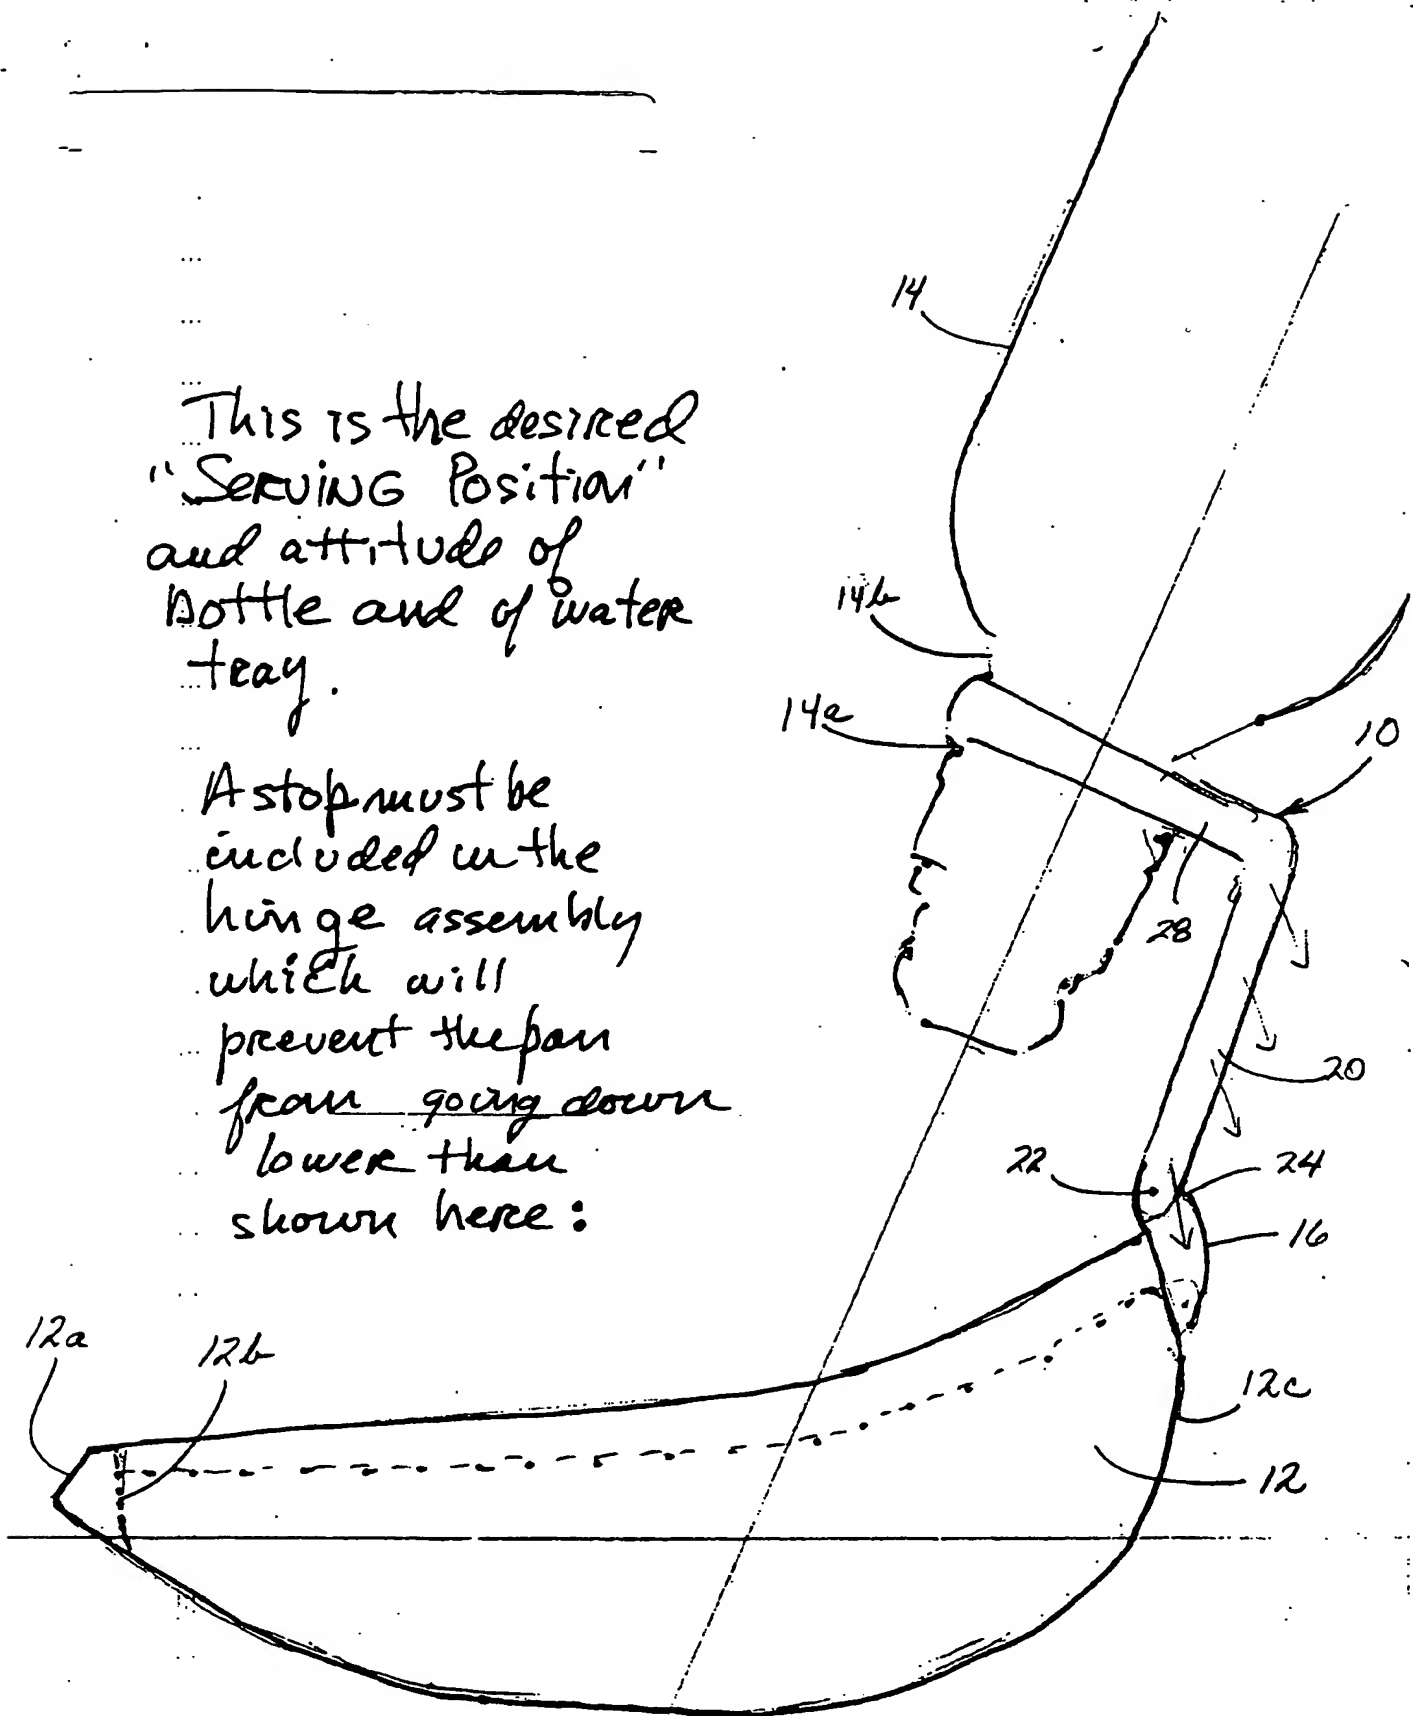 This is the desired
"SERVING Position"
and attitude of
bottle and of water
tray.
A stop must be
included in the
hinge assembly
which will
prevent the pan
from going down
lower than
shown here:
14
14b
14a
10
28
20
22
24
16
12a
12b
12c
12